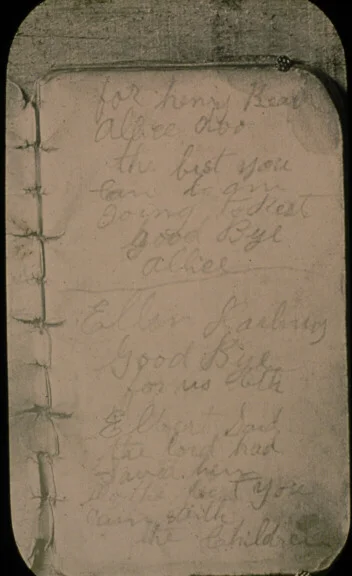 for henry Bear
Allice do
the best you
Can
Going to Rest
Good Bye
Allice
Ellen Darling
Good Bye
for us Both
Elbert Said
the lord had
Saved him
do the best you
Can with
the Children